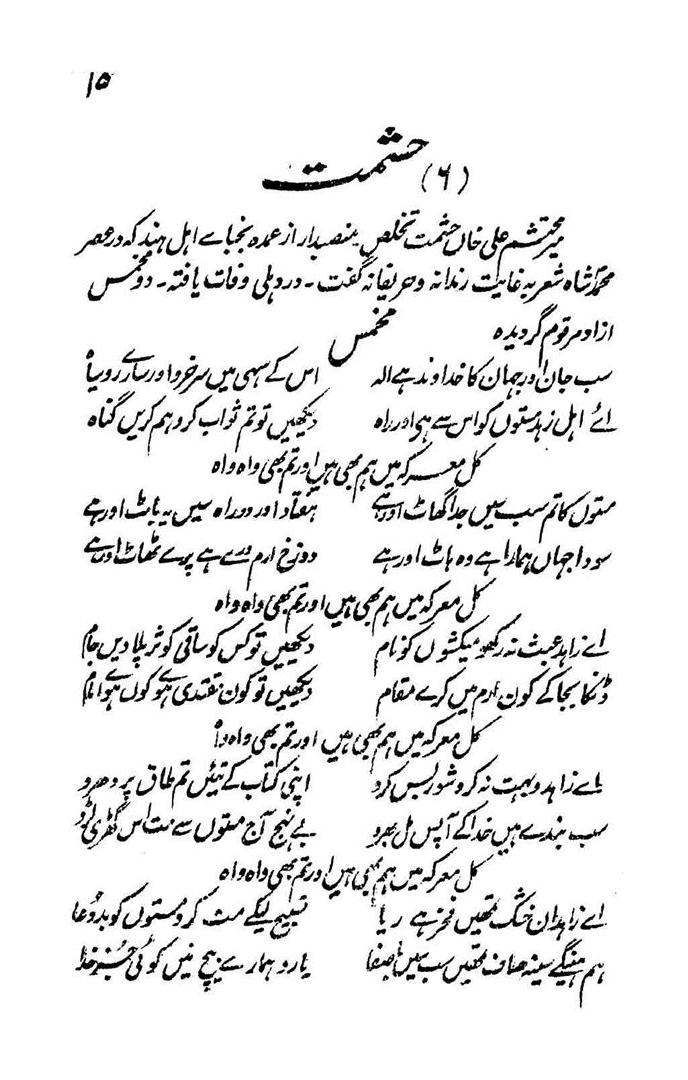 ۱۵
(۶) حشمت
میر محتشم علی خاں حشمت تخلص منصبدار از عمدہ نجباے اہل ہند کہ در عصر
محمد شاہ شعر بہ غایت رندانہ و حریفانہ گفت ۔ در دہلی وفات یافتہ ۔ دو مخمس
از او مرقوم گردیدہ
مخمس
سب جان اور جہان کا خداوند ہے الہ اس کے سہی ہیں سرخرو اور سارے رو سیاہ
اے اہل زہد مستوں کو اس سے ہی اور راہ دیکھیں تو تم ثواب کرو ہم کریں گناہ
کل معرکہ میں ہم بھی ہیں اور تم بھی واہ واہ
متوں کا تم سب سیں جدا گھاٹ اور ہے ہفتاد اور دو راہ سیں یہ باٹ اور ہے
سودا جہاں ہمارا ہے وہ ہاٹ اور ہے دوزخ ارم ورے ہے پرے ٹھاٹ اور ہے
کل معرکہ میں ہم بھی ہیں اور تم بھی واہ واہ
اے زاہد عبث نہ رکھو میکشوں کو نام دیکھیں تو کس کو ساقی کوثر پلا دیں جام
ڈنکا بجا کے کون ارم میں کرے مقام دیکھیں تو کون مقتدی ہے کون ہے ہوا امام
کل معرکہ میں ہم بھی ہیں اور تم بھی واہ واہ
اے زاہد و بہت نہ کرو شور بس کرو اپنی کتاب کے تئیں تم طاق پر دھرو
سب بندے ہیں خدا کے آپس مل بھرو بے نہج آج متوں سے مت اس گھڑی لڑو
کل معرکہ میں ہم بھی ہیں اور تم بھی واہ واہ
اے زاہدان خشک تمھیں فخر ہے ریا تسبیح لیکے مت کرو مستوں کو بد دعا
ہم سینہ صاف تمھیں سب سیں باصفا یارو ہمارے بیچ نہیں کوئی جز خدا